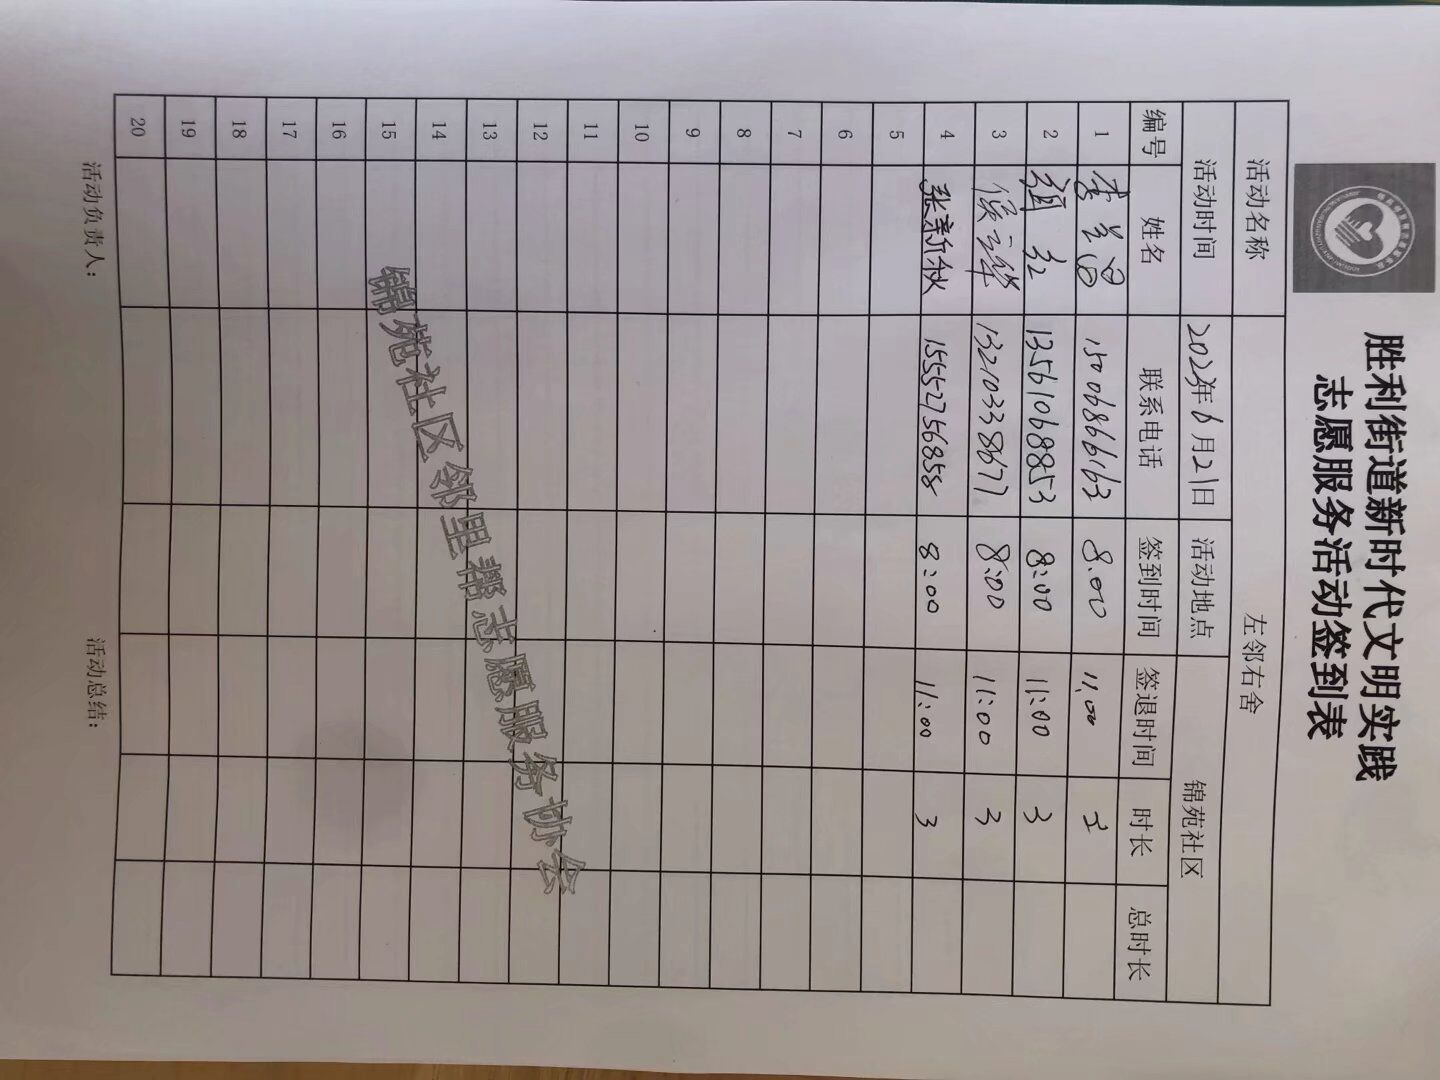 胜利街道新时代文明实践
志愿服务活动签到表
活动名称 左邻右舍
活动时间 2023年6月21日 活动地点 锦苑社区
编号 姓名 联系电话 签到时间 签退时间 时长 总时长
1 15006866163 8:00 11:00 3
2 红 13561068853 8:00 11:00 3
3 侯 13210338677 8:00 11:00 3
4 张新秋 15552756858 8:00 11:00 3
5
6
7
8
9
10
11
12
13
14
15
16
17
18
19
20
锦苑社区邻里帮志愿服务协会
活动负责人: 活动总结: